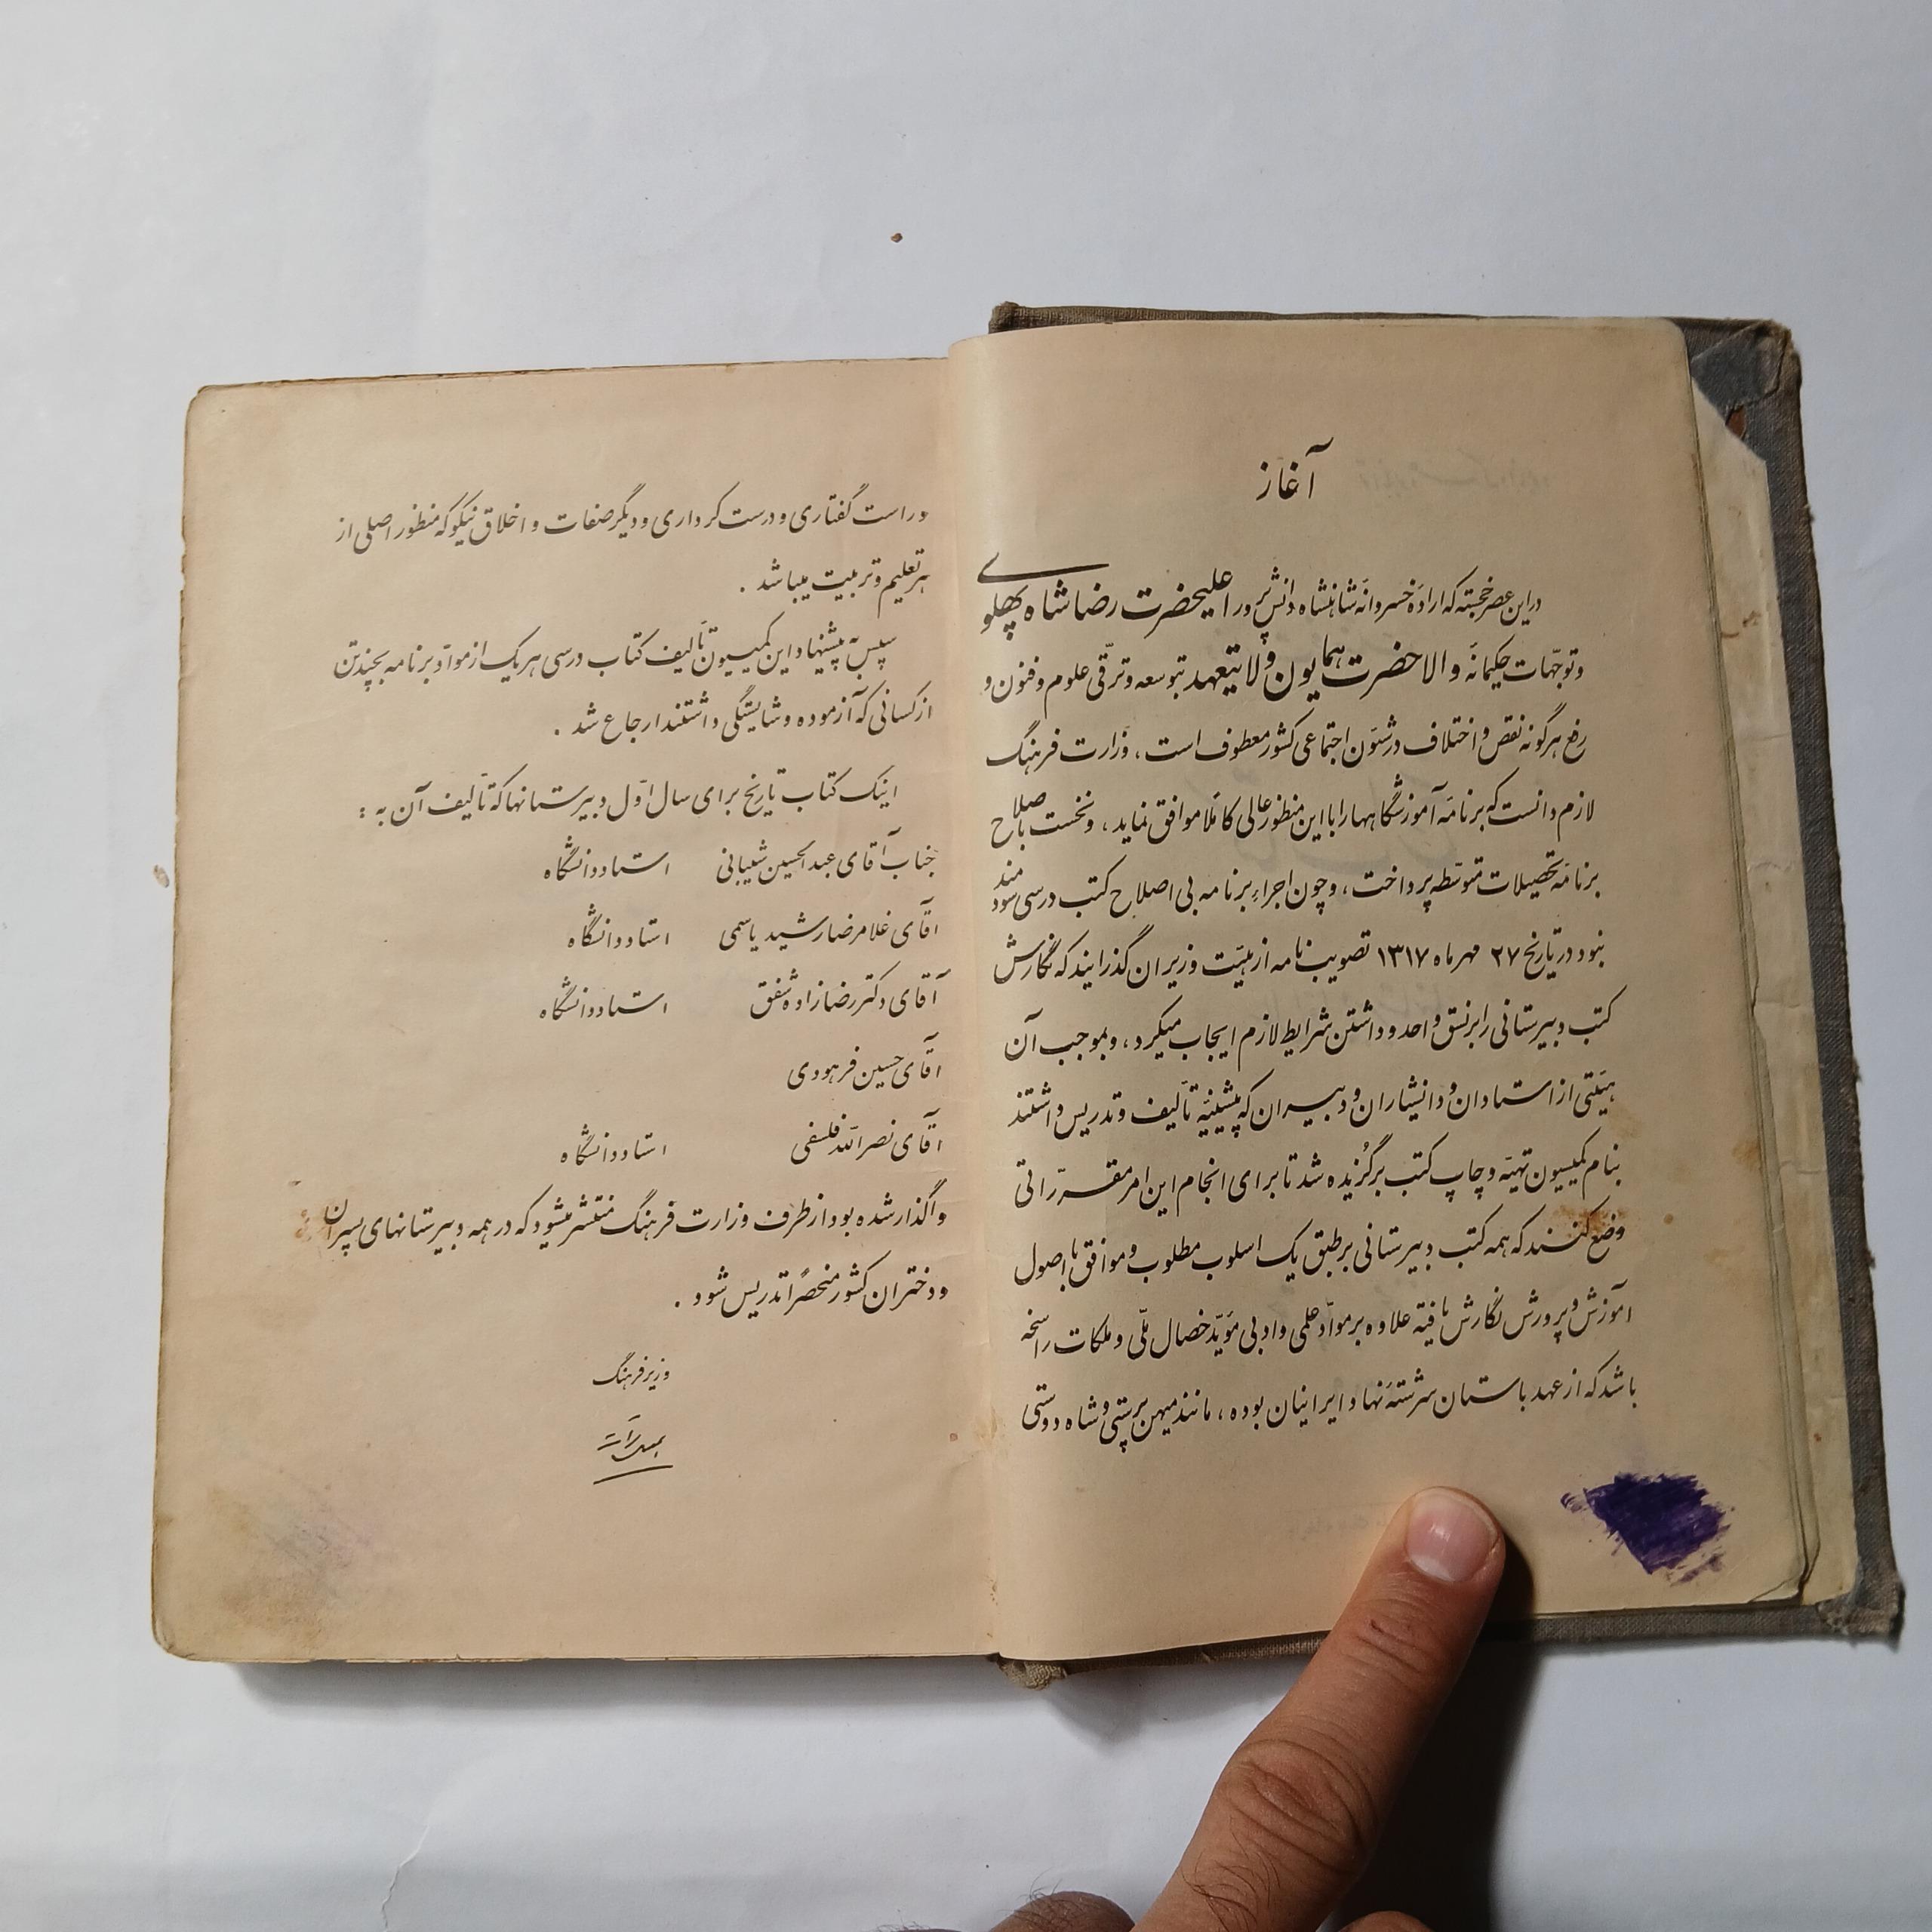 آغاز
دراین عصر خجسته که ارادهٔ خسروانهٔ شاهنشاه دانش پرور اعلیحضرت رضا شاه پهلوی
و توجّهات حکیمانهٔ والاحضرت همایون ولایتعهد بتوسعه و ترقّی علوم و فنون و
رفع هرگونه نقص و اختلاف در شئون اجتماعی کشور معطوف است ، وزارت فرهنگ
لازم دانست که برنامهٔ آموزشگاهها را با این منظور عالی کاملًا موافق نماید ، و نخست باصلاح
برنامهٔ تحصیلات متوسّطه پرداخت ، و چون اجراءِ برنامه بی اصلاح کتب درسی سودمند
نبود در تاریخ ۲۷ مهر ماه ۱۳۱۷ تصویب نامه از هیئت وزیران گذرانید که نگارش
کتب دبیرستانی را بر نسق واحد و داشتن شرایط لازم ایجاب میکرد ، و بموجب آن
هیئتی از استادان و دانشیاران و دبیران که پیشینهٔ تألیف و تدریس داشتند
بنام کمیسیون تهیّه و چاپ کتب برگزیده شد تا برای انجام این امر مقرّراتی
وضع کنند که همه کتب دبیرستانی بر طبق یک اسلوب مطلوب و موافق با اصول
آموزش و پرورش نگارش یافته علاوه بر موادّ علمی و ادبی مؤیّد خصال ملّی و ملکات راسخه
باشد که از عهد باستان سرشتهٔ نهاد ایرانیان بوده ، مانند میهن پرستی و شاه دوستی
و راست گفتاری و درست کرداری و دیگر صفات و اخلاق نیکو که منظور اصلی از
هر تعلیم و تربیت میباشد .
سپس به پیشنهاد این کمیسیون تألیف کتاب درسی هر یک از موادّ برنامه بچند تن
از کسانی که آزموده و شایستگی داشتند ارجاع شد .
اینک کتاب تاریخ برای سال اوّل دبیرستانها که تألیف آن به :
جناب آقای عبدالحسین شیبانی استاد دانشگاه
آقای غلامرضا رشید یاسمی استاد دانشگاه
آقای دکتر رضازاده شفق استاد دانشگاه
آقای حسین فرهودی
آقای نصرالله فلسفی استاد دانشگاه
واگذار شده بود از طرف وزارت فرهنگ منتشر میشود که در همه دبیرستانهای پسران
و دختران کشور منحصرًا تدریس شود .
وزیر فرهنگ